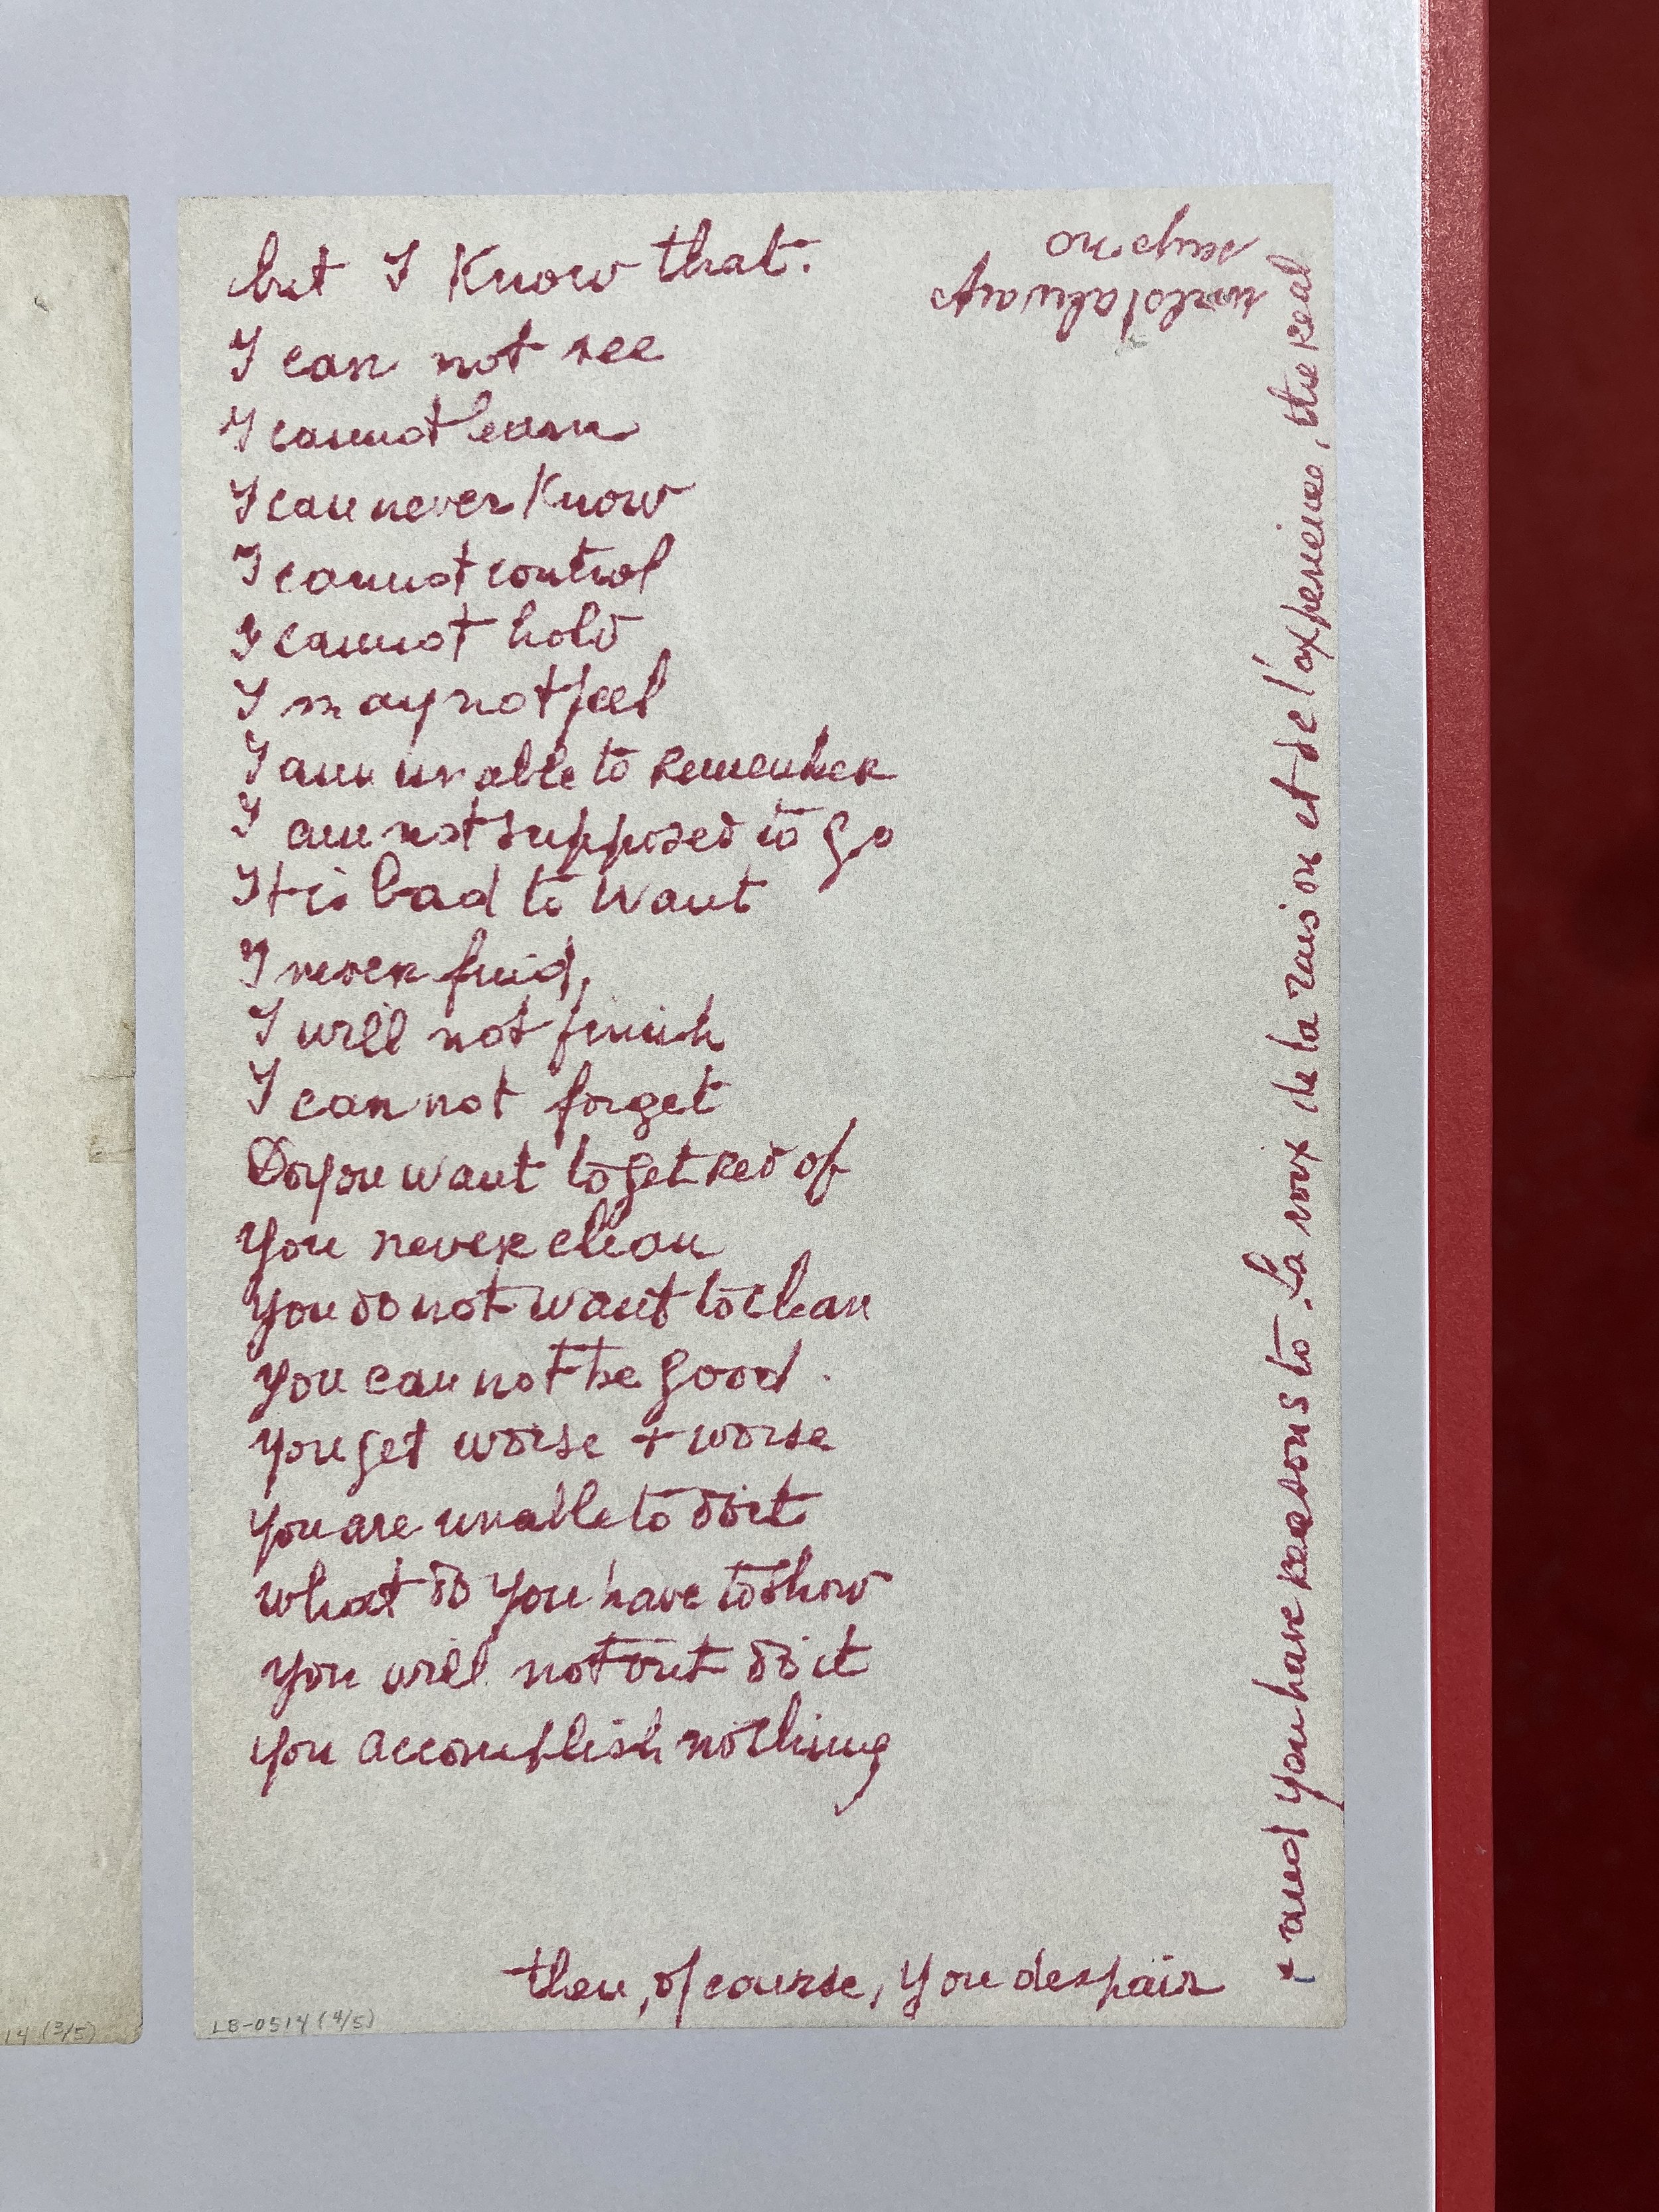 but I Know that.
I can not see
I cannot learn
I can never Know
I cannot control
I cannot hold
I may not feel
I am unable to Remember
I am not supposed to go
It is bad to want
I never find,
I will not finish
I can not forget
Do you want to get Red of
you never clean
you do not want to clean
you can not be good
you get worse + worse
you are unable to do it
what do you have to show
you will not do it
you accomplish nothing
then, of course, you despair
+ and you have reasons to. La voix de la raison et de l'experience, the real
on
LB-0514 (4/5)
14 (3/5)